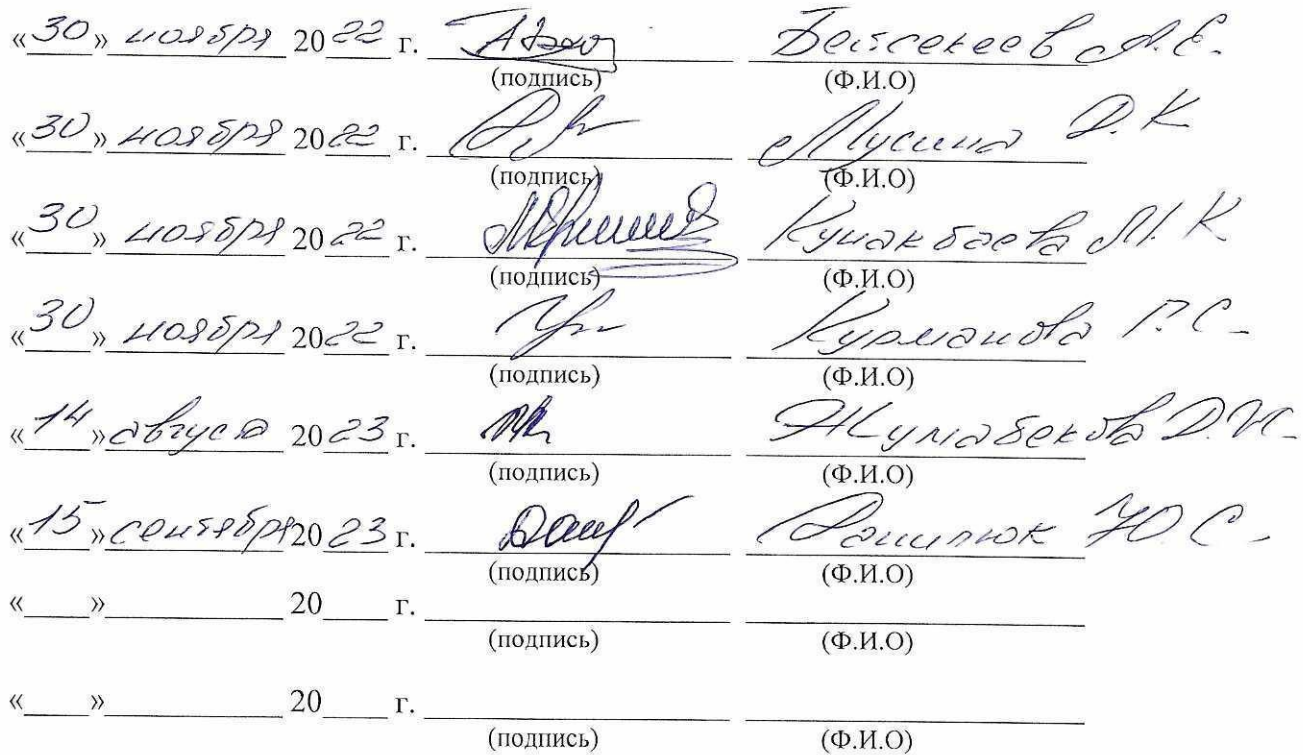 «30» ноября 2022 г. Бейсекеев А.Е.
(подпись) (Ф.И.О)
«30» ноября 2022 г. Мусина Д.К
(подпись) (Ф.И.О)
«30» ноября 2022 г. Кунакбаева М.К
(подпись) (Ф.И.О)
«30» ноября 2022 г. Курманова Г.С.
(подпись) (Ф.И.О)
«14» августа 2023 г. Жумабекова Д.И.
(подпись) (Ф.И.О)
«15» сентября 2023 г. Данилюк Ю.С.
(подпись) (Ф.И.О)
«____»____________ 20____ г.
(подпись) (Ф.И.О)
«____»____________ 20____ г.
(подпись) (Ф.И.О)